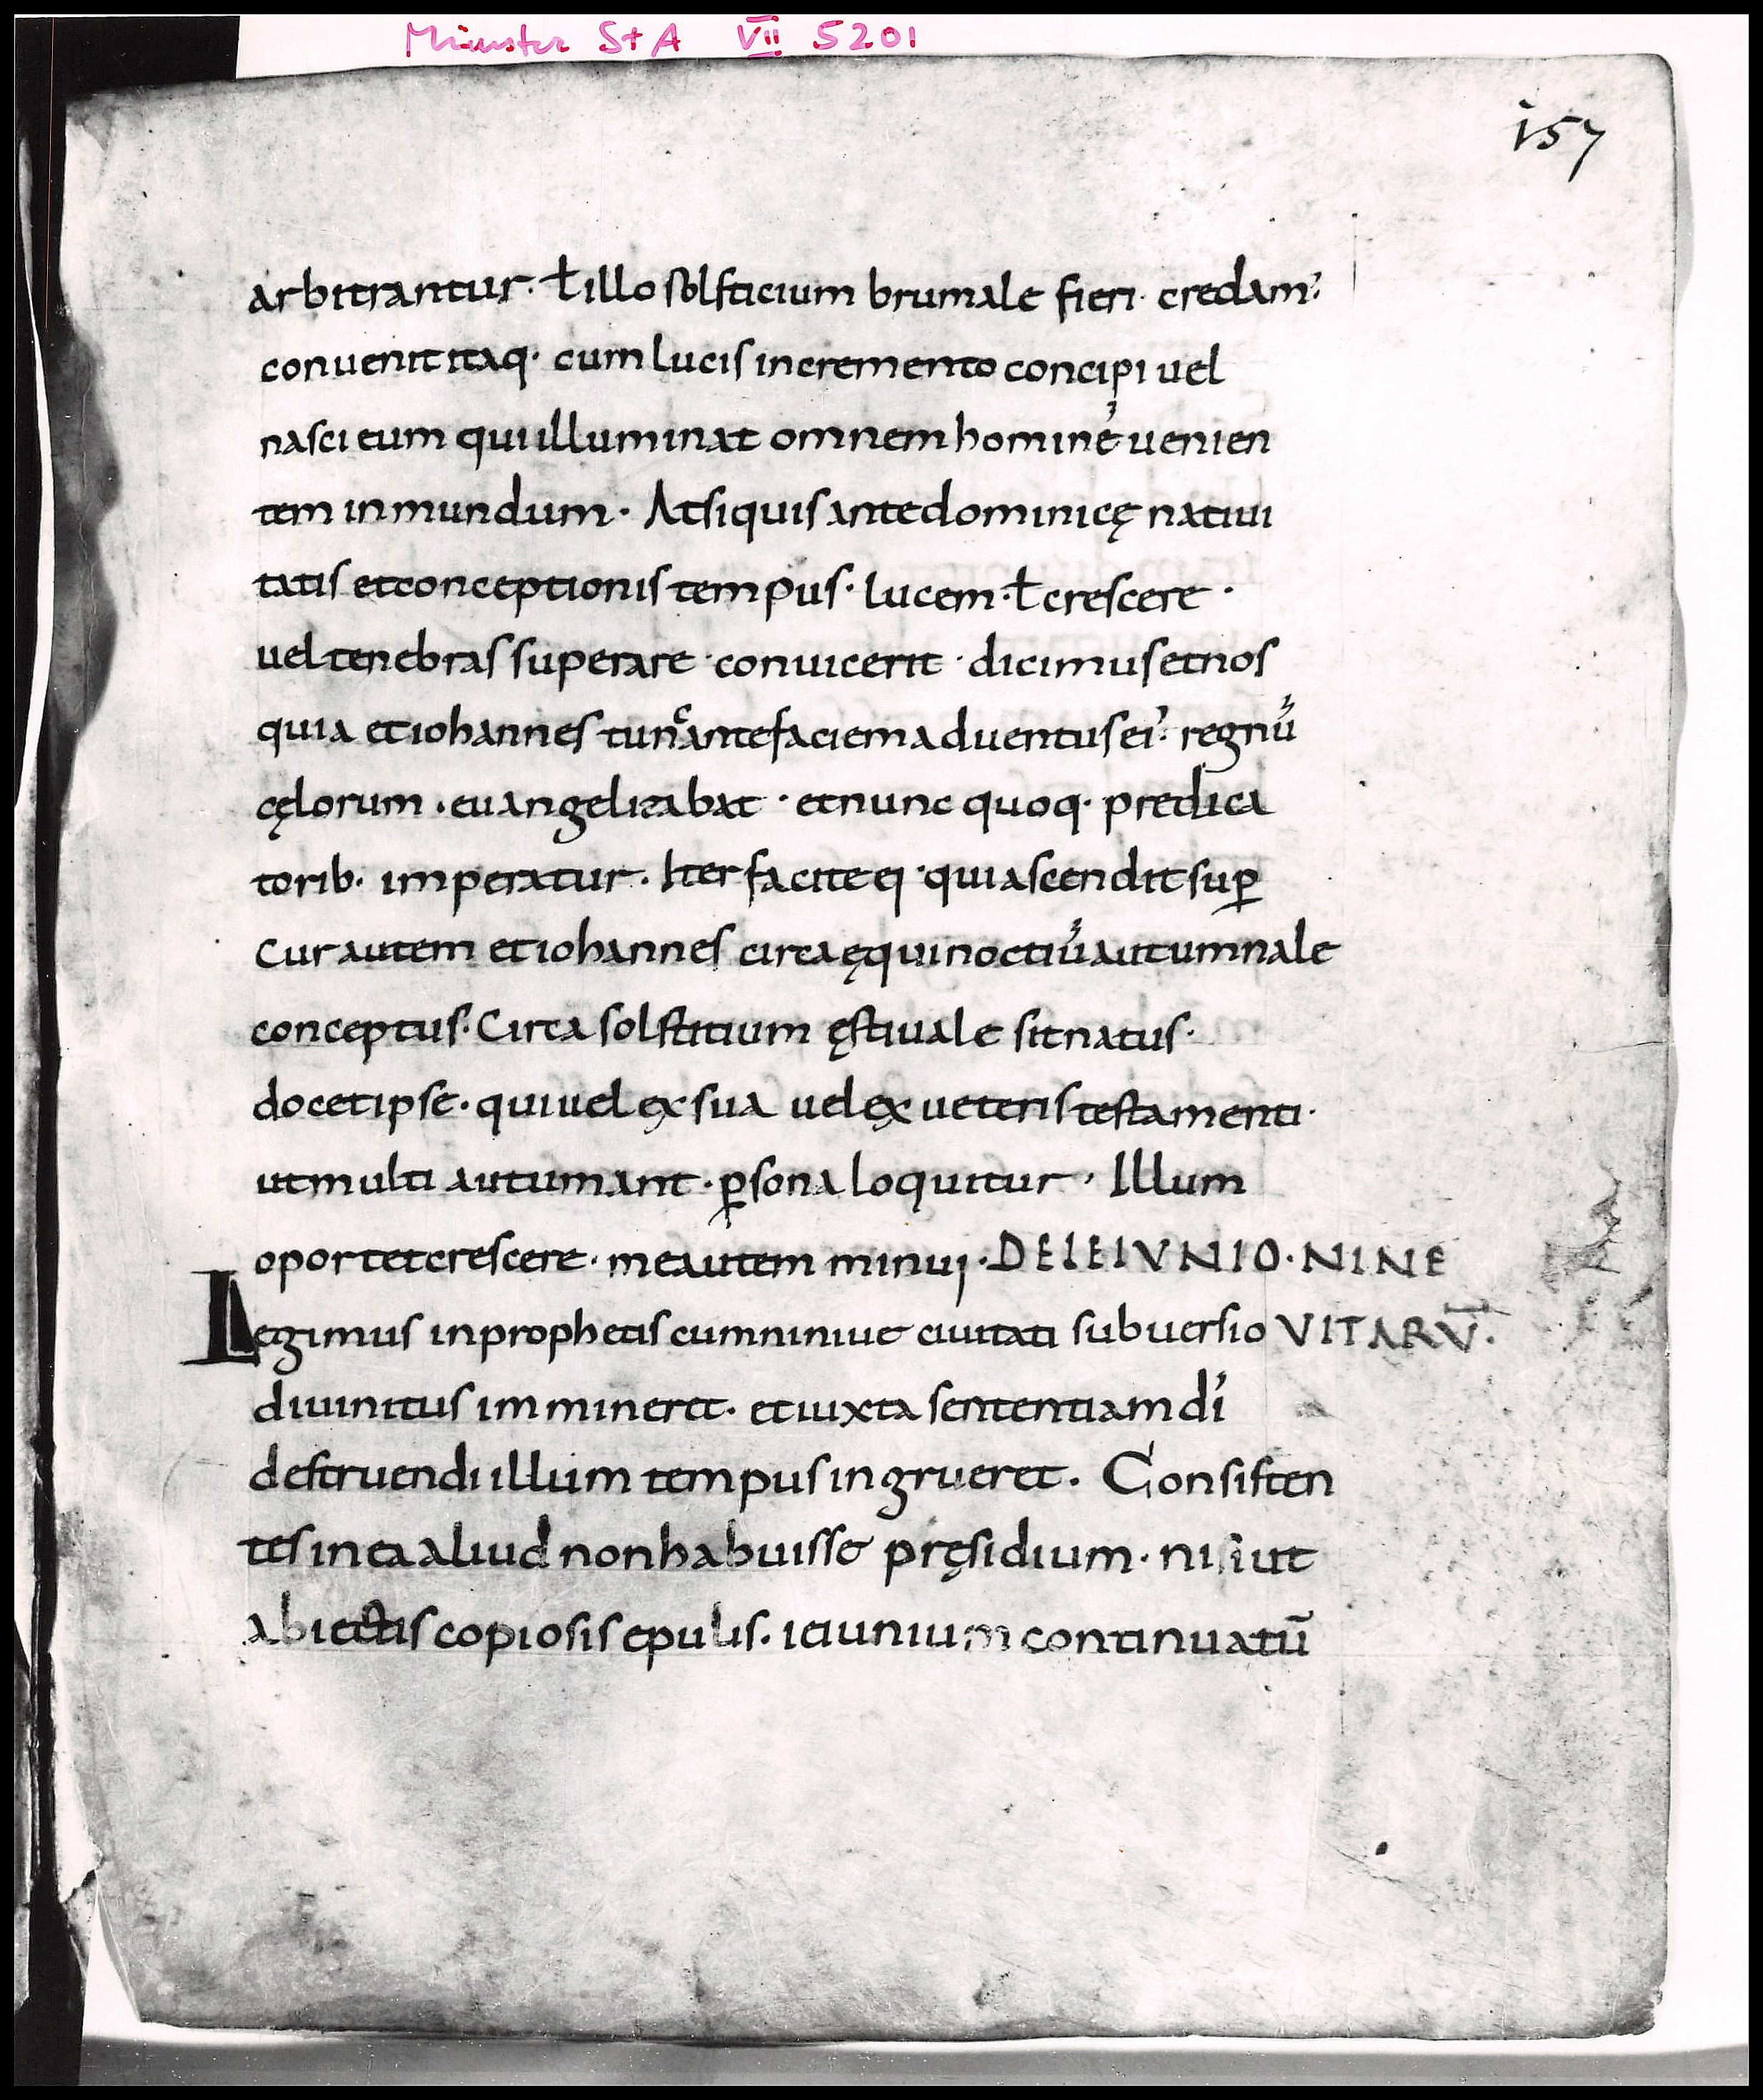 Münster StA VII 5201
157
arbitrantur · ł illo solsticium brumale fieri · credam'
conuenit itaq· cum lucis incremento concipi uel
nasci eum qui illuminat omnem homine̅ uenien
tem in mundum · At si quis ante dominicę natiui
tatis et conceptionis tempus · lucem · ł crescere ·
uel tenebras superare · conuicerit · dicimus et nos
quia et iohannes tunc ante faciem aduentus ei' · regnu̅
cęlorum · euangelizabat · et nunc quoq· predica
torib· imperatur · Iter facite ei · qui ascendit suꝑ
Cur autem et iohannes circa ęquinoctiu̅ autumnale
conceptus · Circa solstitium ęstiuale sit natus ·
docet ipse · qui uel ex sua uel ex ueteris testamenti ·
ut multi autumant · ꝑsona loquitur · Illum
oportet crescere · me autem minui · DE IEIVNIO · NINE
Legimus in prophetis cum niniue ciuitati subuersio VITARV̅ ·
diuinitus immineret · et iuxta sententiam di̅
destruendi illum tempus ingrueret · Consisten
tes in ea aliud non habuisse pręsidium · nisi ut
abiectis copiosis epulis · ieiunium continuatu̅